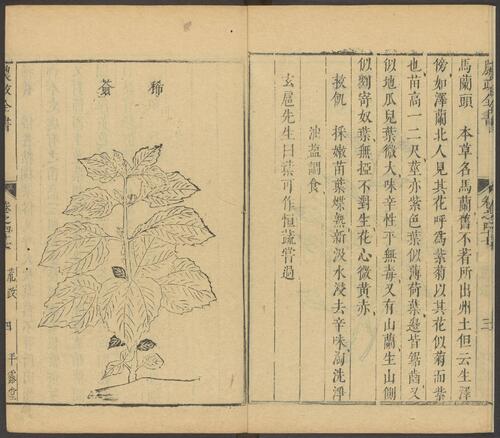 馬蘭頭　本草名馬蘭舊不著所出州土但云生澤
傍如澤蘭北人見其花呼為紫菊以其花似菊而紫
也苗高一二尺莖亦紫色葉似薄荷葉邊皆鋸齒又
似地瓜兒葉微大味辛性平無毒又有山蘭生山側
似劉寄奴葉無椏不對生花心微黃赤
救飢　採嫩苗葉煠熟新汲水浸去辛味淘洗淨
油鹽調食
玄扈先生曰葉可作恒蔬嘗過
農政全書
三
豨薟
農政全書
荒政
四
平露堂